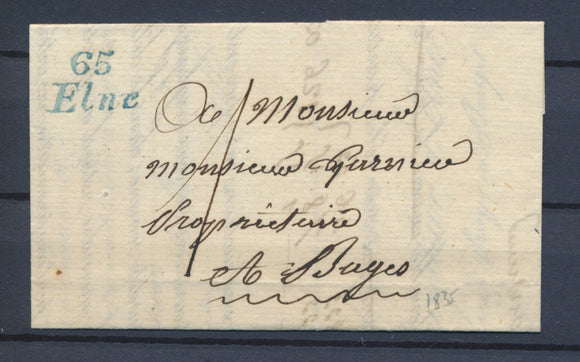 65
Elne
A Monsieur
monsieur Garnier
Propriétaire
A Bages
1835